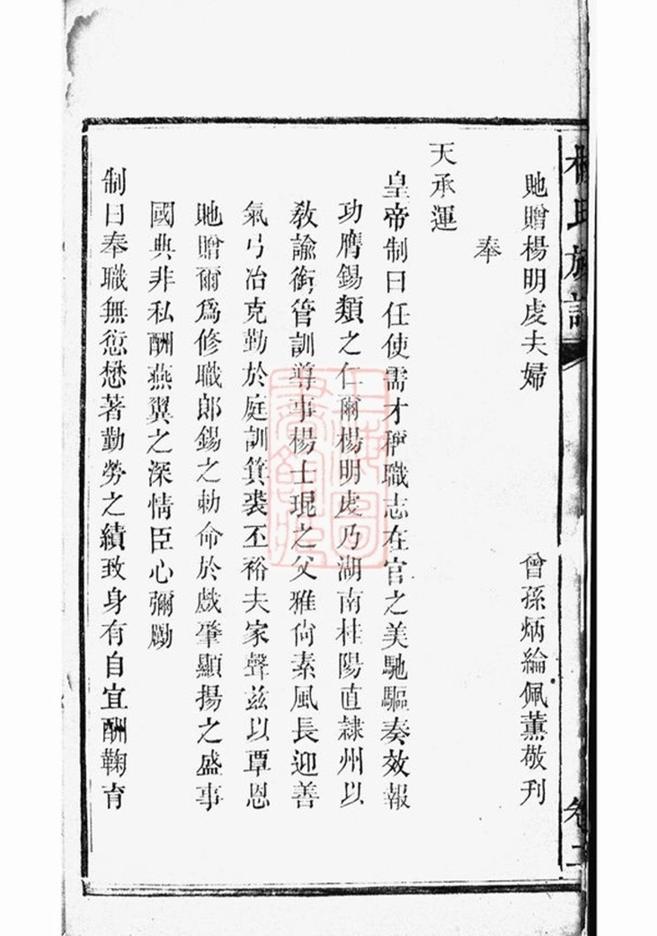 楊氏族譜
卷二
貤贈楊明虔夫婦 曾孫炳綸佩薰敬刊
奉
天承運
皇帝制曰任使需才稱職志在官之美馳驅奏效報
功膺錫類之仁爾楊明虔乃湖南桂陽直隸州以
敎諭銜管訓導事楊士琨之父雅尙素風長迎善
氣弓冶克勤於庭訓箕裘丕裕夫家聲兹以覃恩
貤贈爾爲修職郎錫之勅命於戲肇顯揚之盛事
國典非私酬燕翼之深情臣心彌勵
制曰奉職無愆懋著勤勞之績致身有自宜酬鞠育